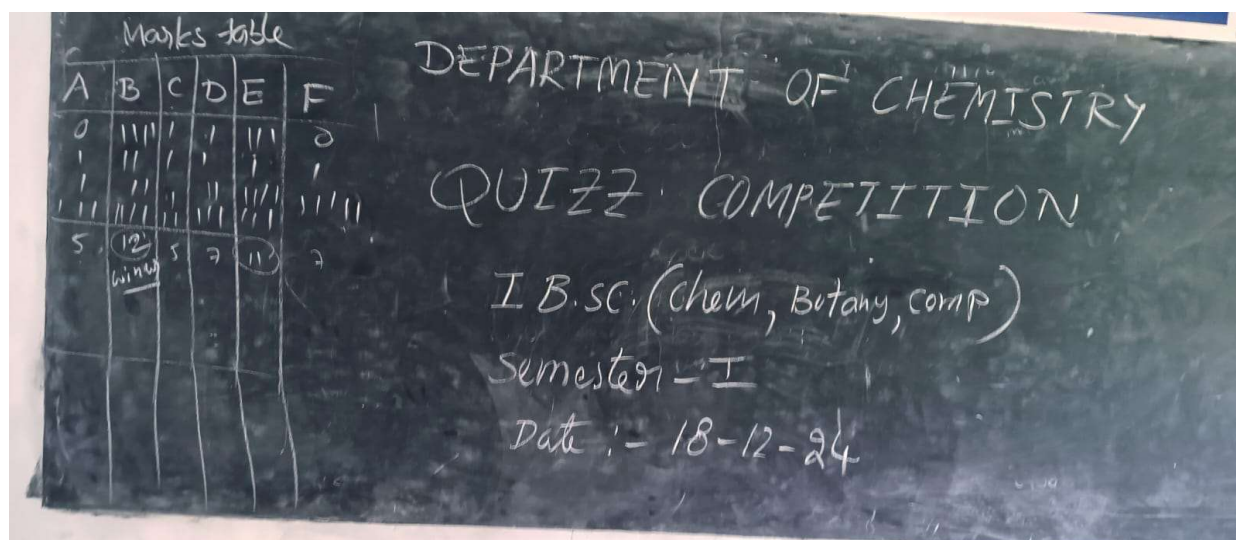 Marks table
A B C D E F
0 |||| | | ||| 0
| || | | | |
5 12 5 7 11 7
winner
DEPARTMENT OF CHEMISTRY
QUIZZ COMPETITION
I B.SC. (Chem, Botany, comp)
Semester - I
Date :- 18-12-24